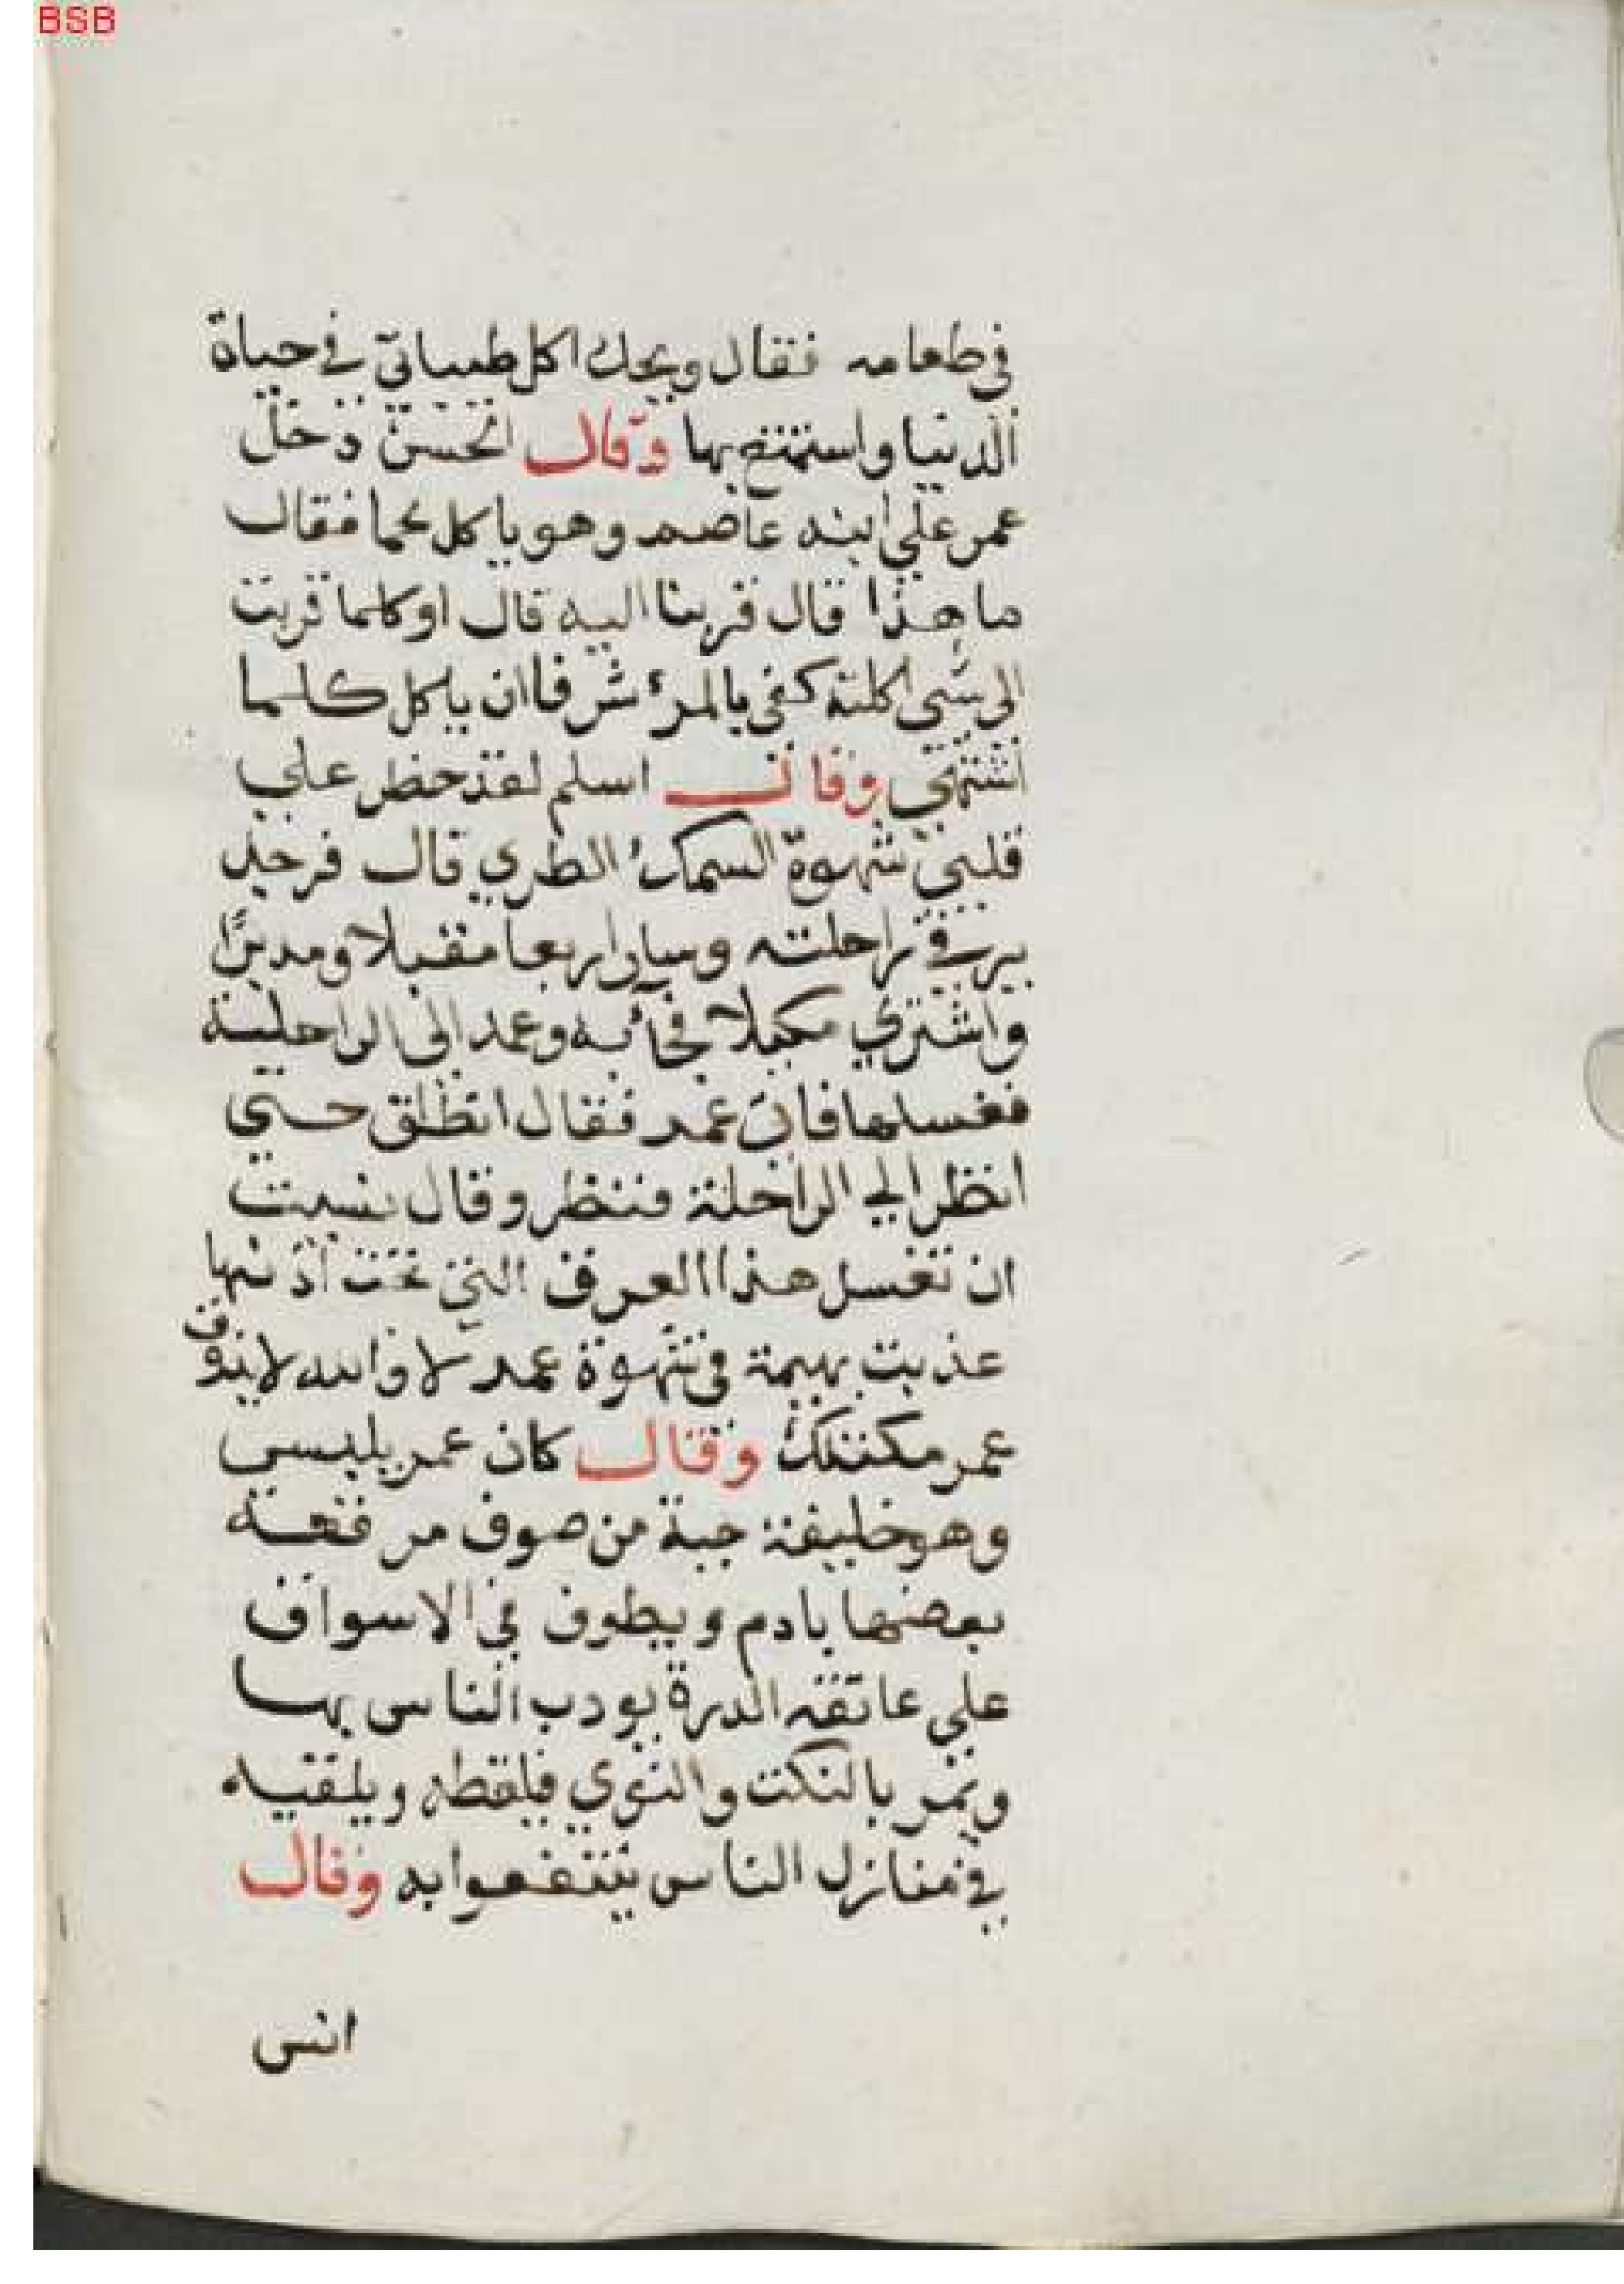 BSB
في طعامه فقال ويحك اكل طيباتي في حياة
الدنيا واستمتع بها وقال الحسن دخل
عمر علي ابنه عاصم وهو ياكل لحما فقال
ما هذا قال قربنا اليه قال او كلما قربت
الى شي اكلته كفى بالمرء شرفا ان ياكل كلما
اشتهي وقال اسلم لقد خطر علي
قلبي شهوة السمك الطري قال فرحل
يرفي راحلته وسار اربعا مقبلا ومدبرا
واشتري مكيلا فجاء به وعمد الى الراحلية
فغسلها فاتى عمر فقال انطلق حتي
انظر الي الراحلة فنظر وقال نسيت
ان تغسل هذا العرق التي تحت اذنها
عذبت بهيمة في شهوة عمر لا والله لا يذوق
عمر مكتلك وقال كان عمر يلبس
وهو خليفة جبة من صوف مرقعة
بعضها بادم ويطوف في الاسواق
علي عاتقه الدرة يودب الناس بها
ويمر بالنكت والنوي فلقطه ويلقيه
في منازل الناس ينتفعوا به وقال
انس